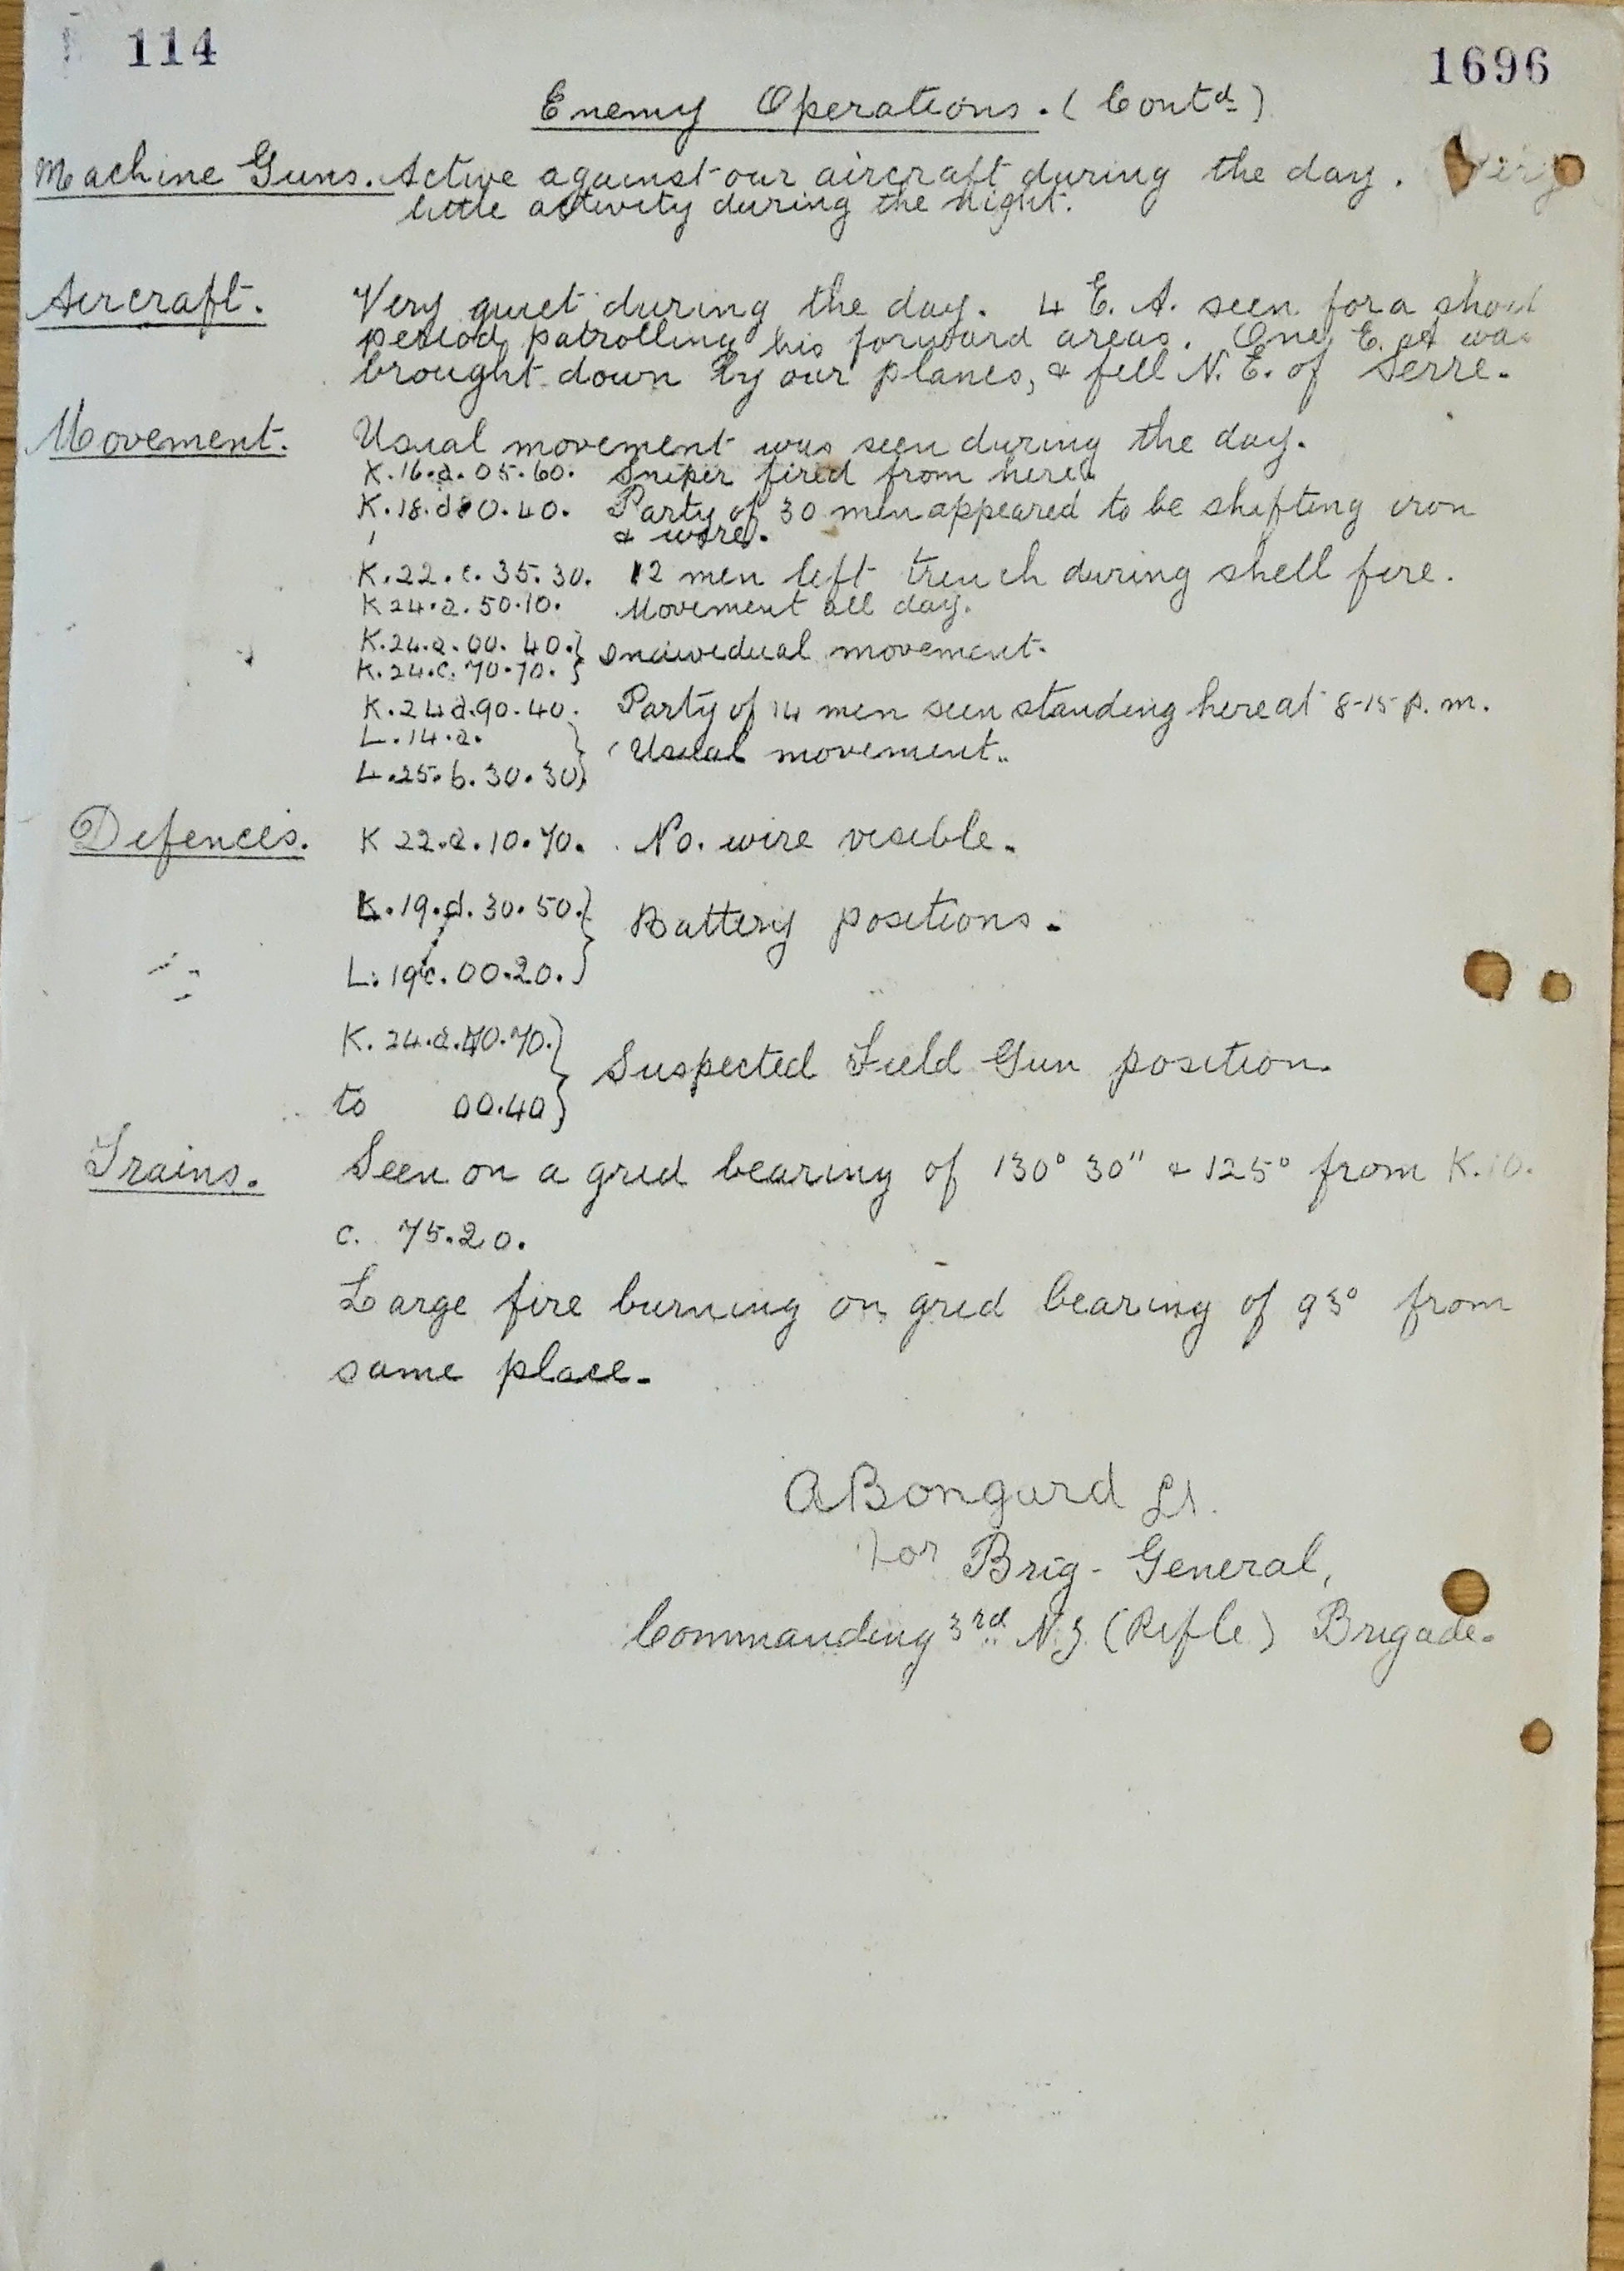 114
1696
Enemy Operations. (Contd)
Machine Guns. Active against our aircraft during the day. Very
little activity during the night.
Aircraft. Very quiet during the day. 4 E. A. seen for a short
period, patrolling his forward areas. One E. A was
brought down by our planes, & fell N. E. of Serre.
Movement. Usual movement was seen during the day.
K.16.a.05.60. Sniper fired from here.
K.18.d.80.40. Party of 30 men appeared to be shifting iron
& wire.
K.22.c.35.30. 12 men left trench during shell fire.
K24.a.50.10. Movement all day.
K.24.a.00.40.} Individual movement.
K.24.c.70.70.}
K.24d.90.40. Party of 14 men seen standing here at 8-15 p.m.
L.14.a. } Usual movement.
L.25.b.30.30}
Defences. K 22.a.10.70. No. wire visible.
K.19.d.30.50.} Battery positions.
L.19c.00.20.}
K.24.a.70.70.} Suspected Field Gun position.
to 00.40}
Trains. Seen on a grid bearing of 130° 30" & 125° from K.10.
c. 75.20.
Large fire burning on grid bearing of 93° from
same place.
ABongard Lt.
for Brig-General,
Commanding 3rd N.Z. (Rifle) Brigade.